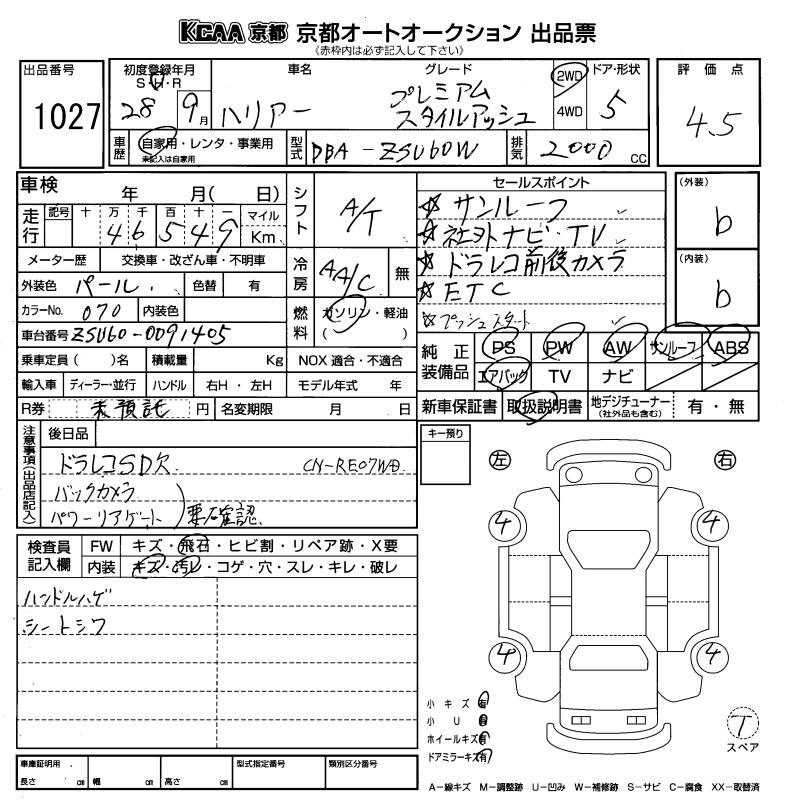 KCAA 京都 京都オートオークション 出品票
(赤枠内は必ず記入して下さい)
出品番号
1027
初度登録年月 車名 グレード ドア・形状
S・H・R
28 9月 ハリアー
プレミアム
スタイルアッシュ
2WD
4WD
5
評価点
4.5
車歴 自家用・レンタ・事業用
未記入は自家用
型式 DBA-ZSU60W 排気 2000 CC
車検 年 月( 日)
走行 記号 十 万 千 百 十 一 マイル
4 6 5 4 9 Km
シフト A/T
メーター歴 交換車・改ざん車・不明車
外装色 パール 色替 有
冷房 AA/C 無
カラーNo. 070 内装色
燃料 ガソリン・軽油
( )
車台番号 ZSU60-0091405
乗車定員 ( )名 積載量 Kg NOX 適合・不適合
輸入車 ディーラー・並行 ハンドル 右H・左H モデル年式 年
R券 未預託 円 名変期限 月 日
セールスポイント
☆ サンルーフ
☆ 社外ナビ・TV
☆ ドラレコ前後カメラ
☆ ETC
☆ プッシュスタート
(外装)
b
(内装)
b
純正装備品 PS PW AW サンルーフ ABS
エアバック TV ナビ
新車保証書 取扱説明書 地デジチューナー 有・無
(社外品も含む)
注意事項(出品店記入)
後日品
ドラレコSD欠 CN-RE07WD
バックカメラ
パワーリアゲート
要確認
キー預り
左 右
4 4
4 4
検査員記入欄 FW キズ・飛石・ヒビ割・リペア跡・X要
内装 キズ・汚レ・コゲ・穴・スレ・キレ・破レ
ハンドルハゲ
シートシワ
小キズ 有
小U 有
ホイールキズ 有
ドアミラーキズ 有
T
スペア
車庫証明用 型式指定番号 類別区分番号
長さ cm 幅 cm 高さ cm
A-線キズ M-調整跡 U-凹み W-補修跡 S-サビ C-腐食 XX-取替済